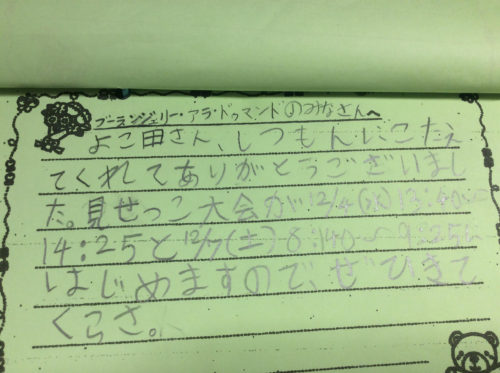 ブーランジェリー・アラ・ドゥマンドのみなさんへ
よこ田さん、しつもんにこたえ
てくれてありがとうございまし
た。見せっこ大会が12/4(水)13:40〜
14:25と12/7(土)8:40〜9:25に
はじめますので、ぜひきて
くらさ。